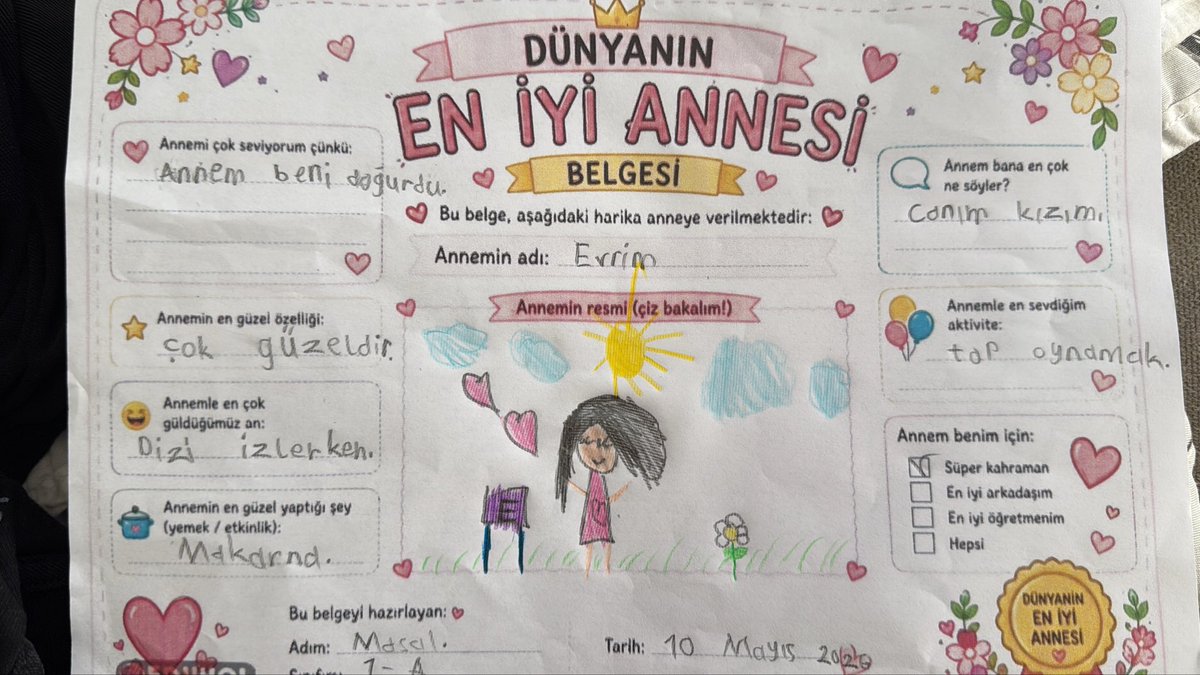 DÜNYANIN
EN İYİ ANNESİ
BELGESİ
Bu belge, aşağıdaki harika anneye verilmektedir:
Annemin adı: Evrim
Annemi çok seviyorum çünkü:
Annem beni doğurdu.
Annemin en güzel özelliği:
çok güzeldir.
Annemle en çok
güldüğümüz an:
Dizi izlerken.
Annemin en güzel yaptığı şey
(yemek / etkinlik):
Makarna.
Annemin resmi (çiz bakalım!)
Annem bana en çok
ne söyler?
Canım kızım.
Annemle en sevdiğim
aktivite:
top oynamak.
Annem benim için:
Süper kahraman
En iyi arkadaşım
En iyi öğretmenim
Hepsi
Bu belgeyi hazırlayan:
Adım: Masal.
Tarih: 10 Mayıs 2026
Sınıfım: 1-A
DÜNYANIN
EN İYİ
ANNESİ